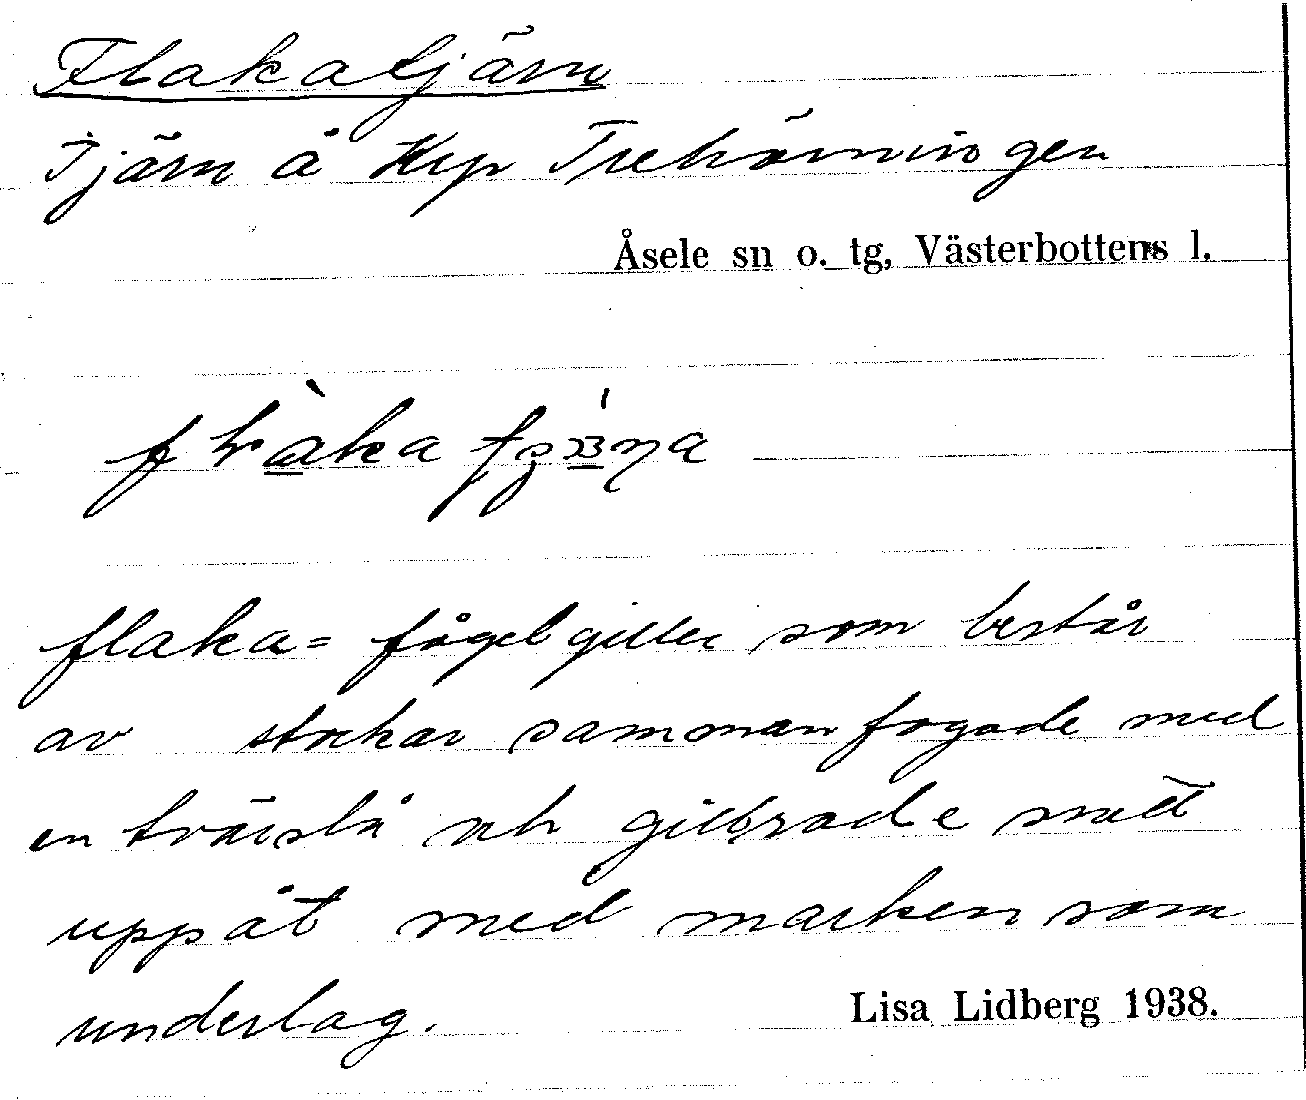 Flakatjärn
Tjärn å Krp Trehörningen
Åsele sn o. tg, Västerbottens l.
flaka= fågelgiller som består
av stockar sammanfogade med
en träslå och gillrade snett
uppåt med marken som
underlag.
Lisa Lidberg 1938.